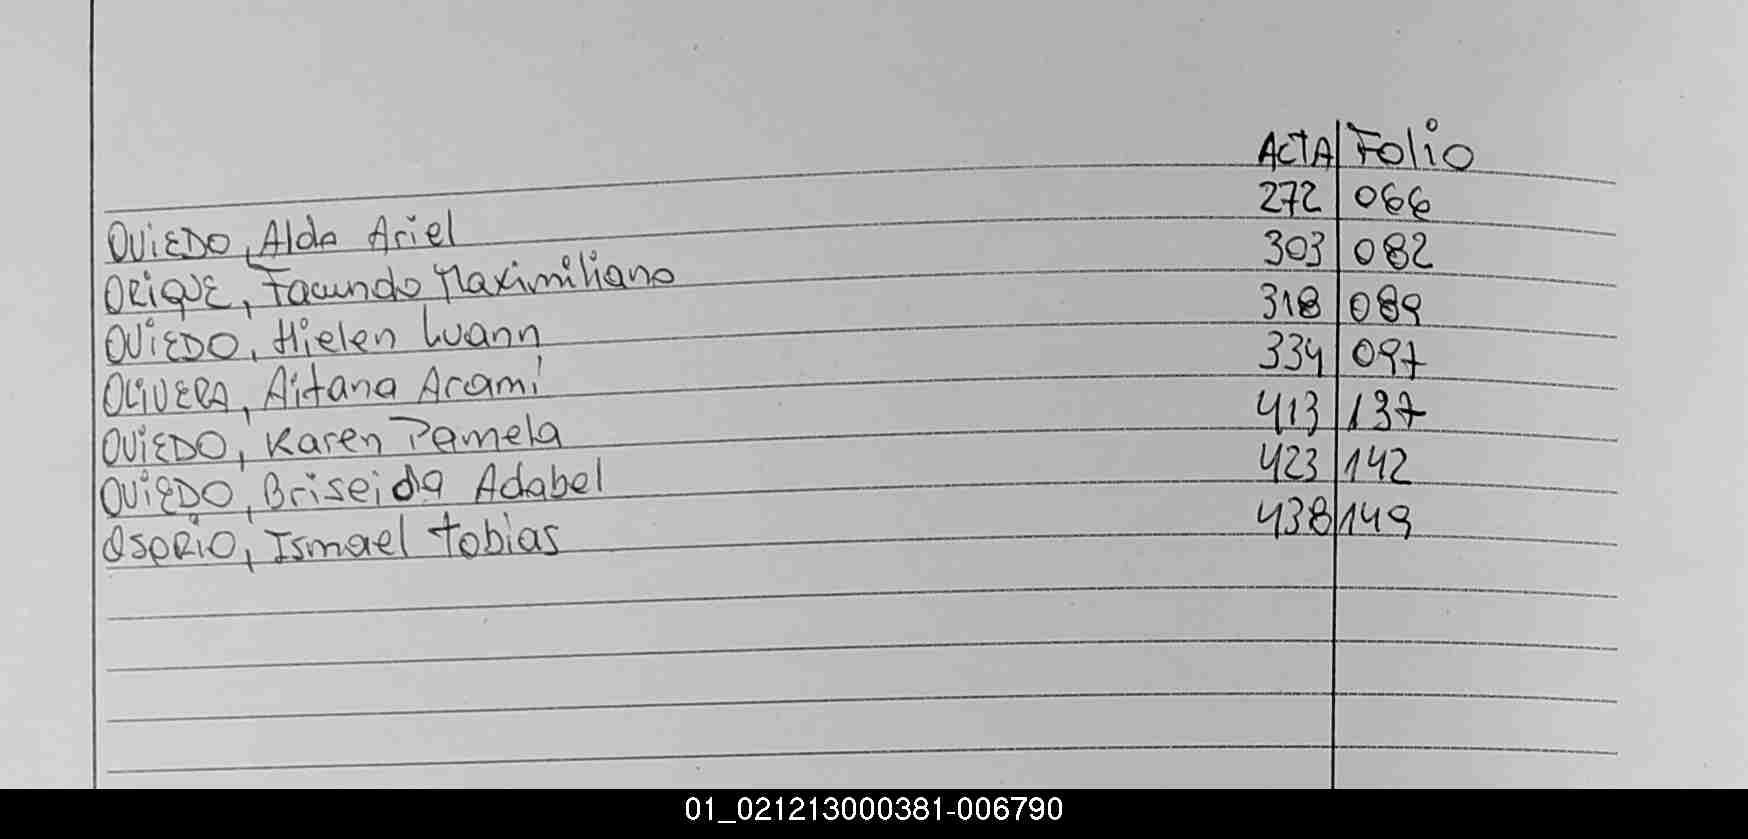 ACTA Folio
OVIEDO, Aldo Ariel 272 066
ORIQUE, Facundo Maximiliano 303 082
OVIEDO, Hielen Luann 318 089
OLIVERA, Aitana Aramí 334 097
OVIEDO, Karen Pamela 413 137
OVIEDO, Briseida Adabel 423 142
OSORIO, Ismael tobias 438 149
01_021213000381-006790